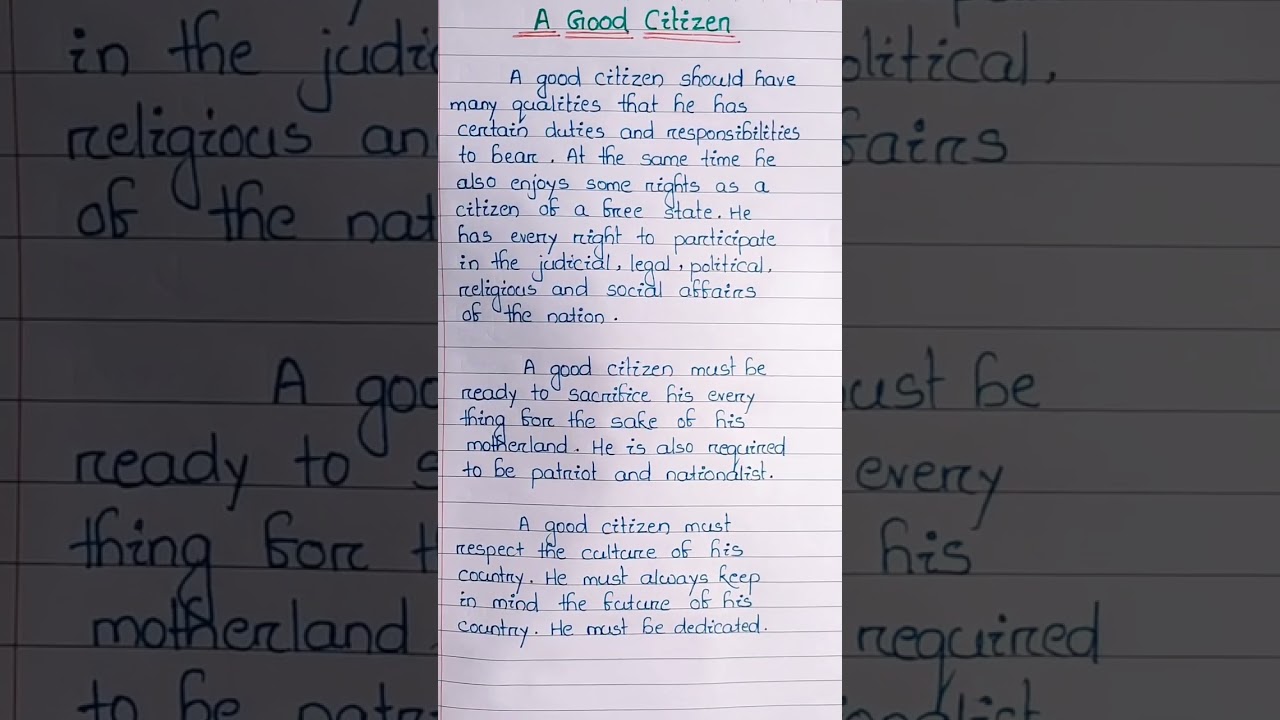 A Good Citizen
A good citizen should have
many qualities that he has
certain duties and responsibilities
to bear. At the same time he
also enjoys some rights as a
citizen of a free state. He
has every right to participate
in the judicial, legal, political,
religious and social affairs
of the nation.
A good citizen must be
ready to sacrifice his every
thing for the sake of his
motherland. He is also required
to be patriot and nationalist.
A good citizen must
respect the culture of his
country. He must always keep
in mind the future of his
country. He must be dedicated.